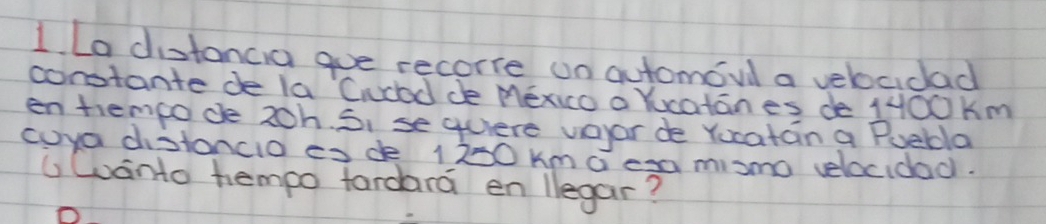 1. La distancia que recorre un automóvil a velocidad
constante de la Ciudad de México a Yucatán es de 1400 Km
en tiempo de 20h. Si se quiere viajar de Yucatán a Puebla
cuya distancia es de 1250 Km a esa misma velocidad.
¿Cuánto tiempo tardará en llegar?